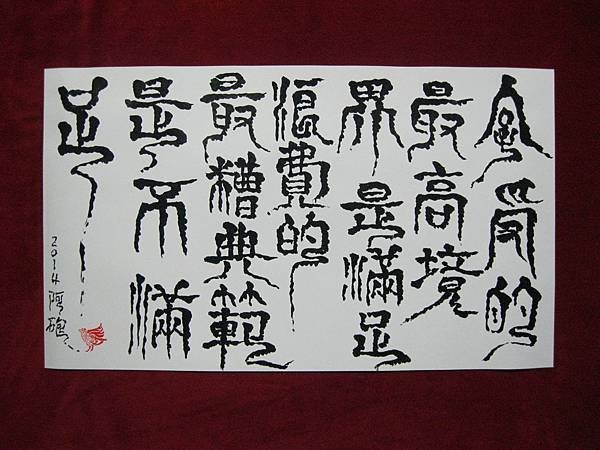 享受的
最高境
界是滿足
浪費的
最糟典範
是不滿
足
2014阿砲